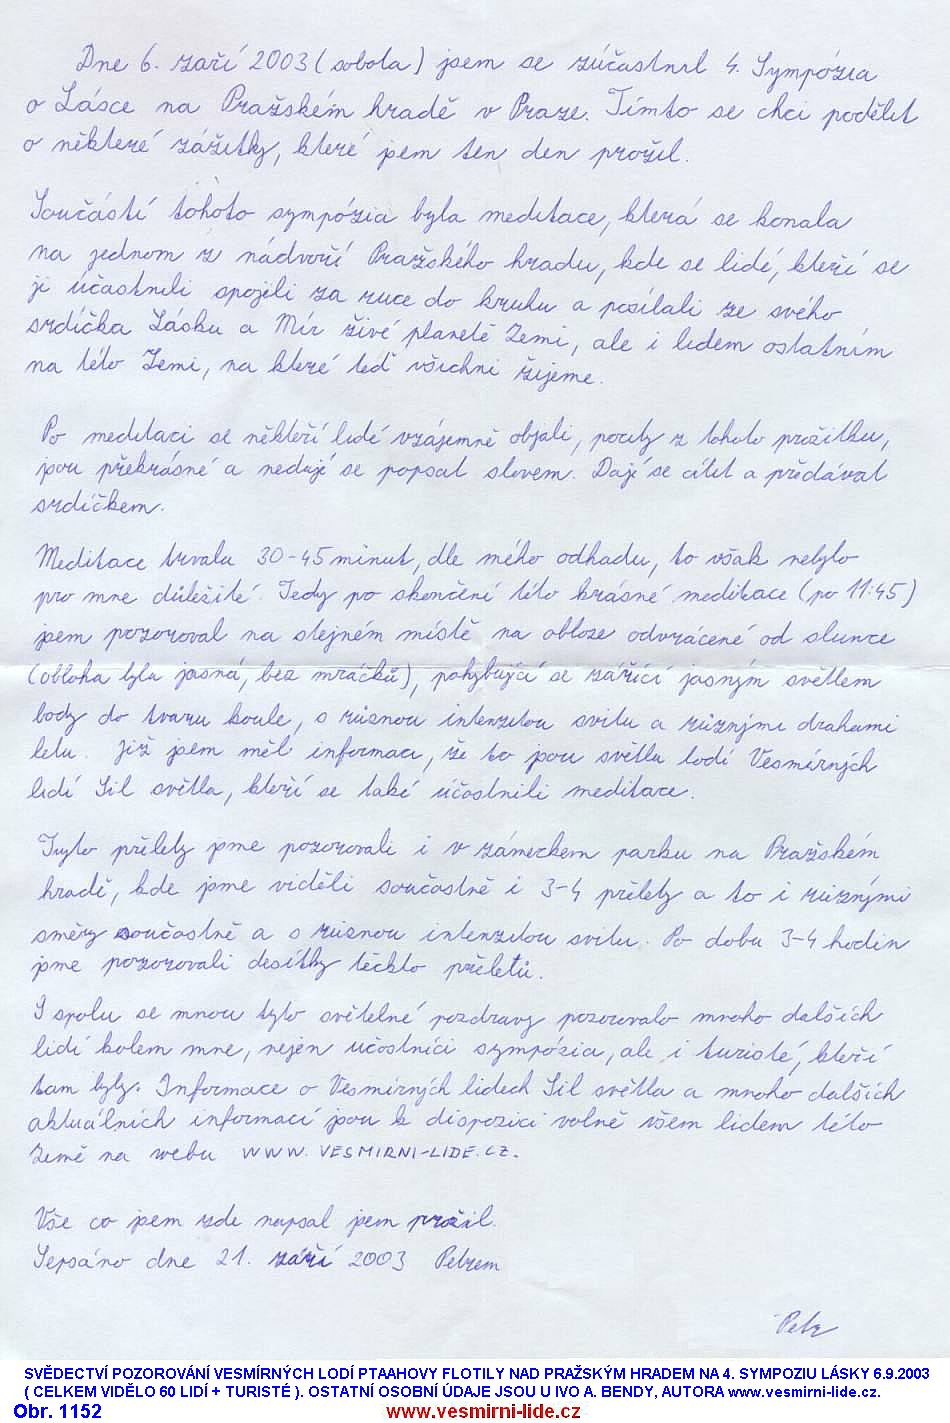 Dne 6. září 2003 (sobota) jsem se zúčastnil 4. Sympózia
o Lásce na Pražském hradě v Praze. Tímto se chci podělit
o některé zážitky, které jsem ten den prožil.
Součástí tohoto sympózia byla meditace, která se konala
na jednom z nádvoří Pražského hradu, kde se lidé, kteří se
jí účastnili spojili za ruce do kruhu a posílali ze svého
srdíčka Lásku a Mír živé planetě Zemi, ale i lidem ostatním
na této Zemi, na které teď všichni žijeme.
Po meditaci se někteří lidé vzájemně objali, pocity z tohoto prožitku,
jsou překrásné a nedají se popsat slovem. Dají se cítit a předávat
srdíčkem.
Meditace trvala 30-45 minut, dle mého odhadu, to však nebylo
pro mne důležité. Tedy po skončení této krásné meditace (po 11:45)
jsem pozoroval na stejném místě na obloze odvrácené od slunce
(obloha byla jasná, bez mráčků), pohybující se zářící jasným světlem
body do tvaru koule, s různou intenzitou svitu a různými drahami
letu. Již jsem měl informaci, že to jsou světla lodí Vesmírných
lidí Sil světla, kteří se také účastnili meditace.
Tyto přelety jsme pozorovali i v zámeckém parku na Pražském
hradě, kde jsme viděli součastně i 3-4 přelety a to i různými
směry součastně a s různou intenzitou svitu. Po dobu 3-4 hodin
jsme pozorovali desítky těchto přeletů.
I spolu se mnou tyto světelné pozdravy pozorovalo mnoho dalších
lidí kolem mne, nejen účastníci sympózia, ale i turisté, kteří
tam byly. Informace o Vesmírných lidech Sil světla a mnoho dalších
aktuálních informací jsou k dispozici volně všem lidem této
Země na webu WWW.VESMIRNI-LIDE.CZ.
Vše co jsem zde napsal jsem prožil.
Sepsáno dne 21. září 2003 Petrem
Petr
SVĚDECTVÍ POZOROVÁNÍ VESMÍRNÝCH LODÍ PTAAHOVY FLOTILY NAD PRAŽSKÝM HRADEM NA 4. SYMPOZIU LÁSKY 6.9.2003
( CELKEM VIDĚLO 60 LIDÍ + TURISTÉ ). OSTATNÍ OSOBNÍ ÚDAJE JSOU U IVO A. BENDY, AUTORA www.vesmirni-lide.cz.
Obr. 1152 www.vesmirni-lide.cz